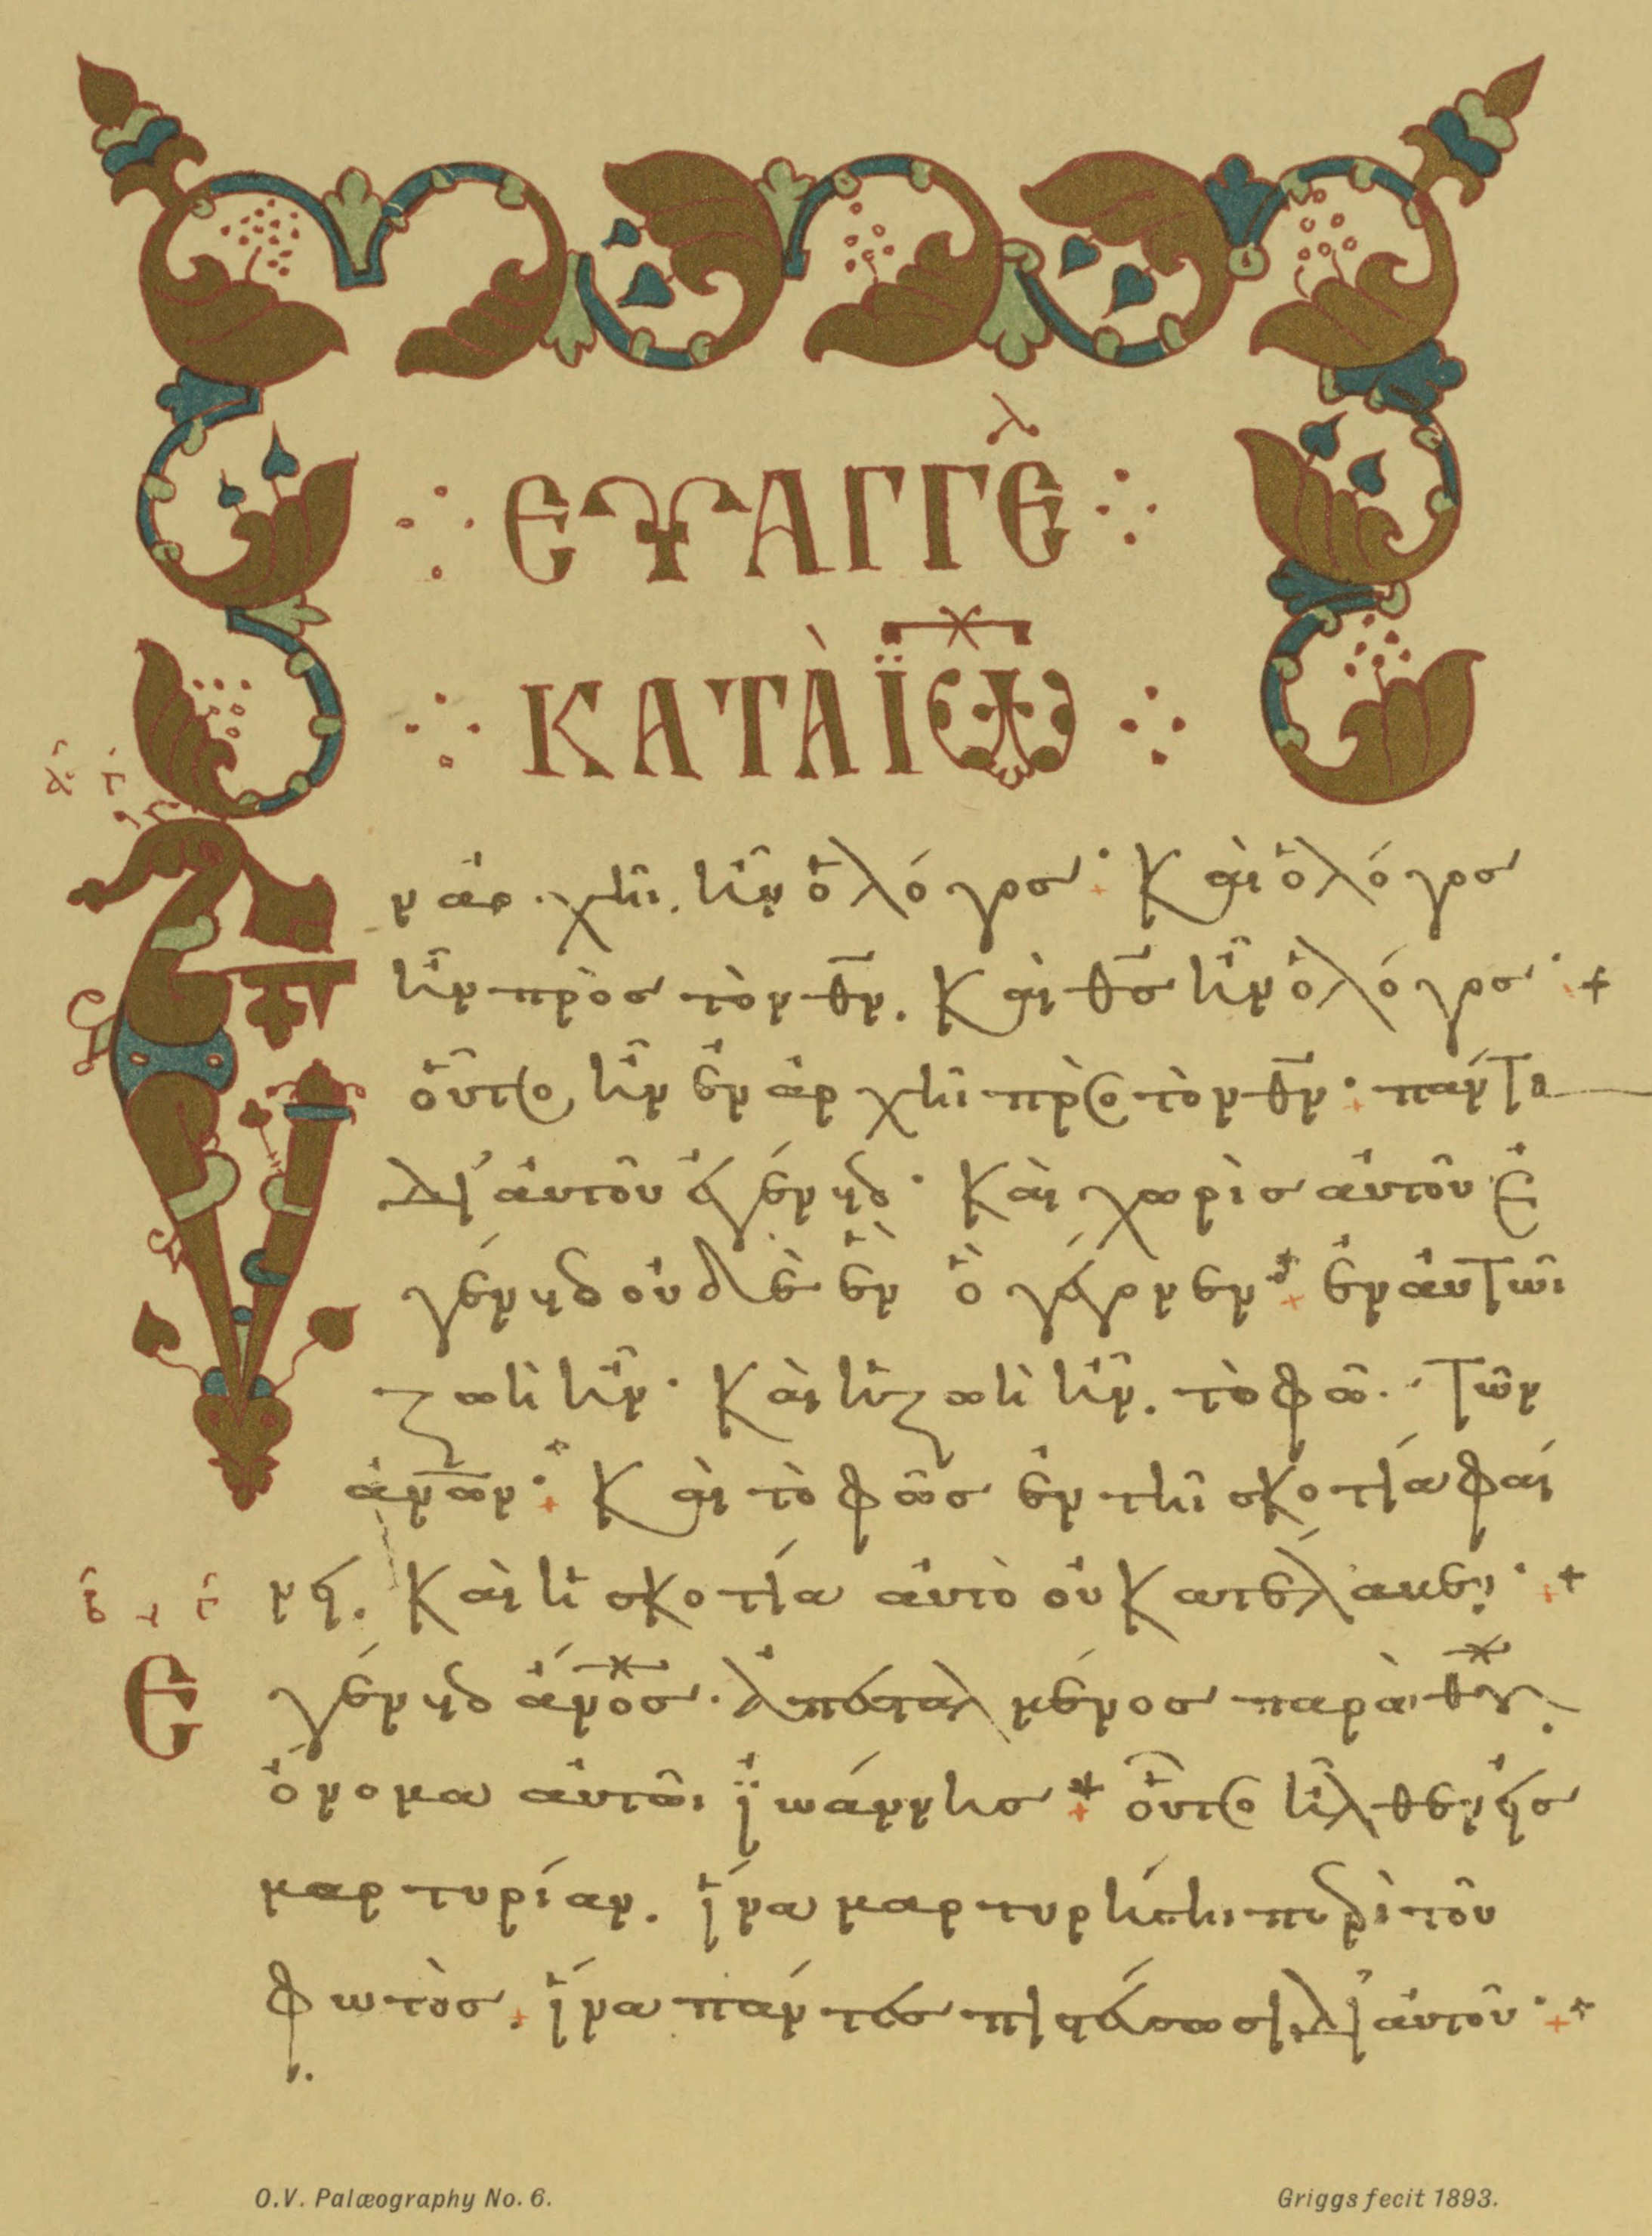 ΕΥΑΓΓΕλ
ΚΑΤᾺ ΪΩ
ν ἀρχῆι ἦν ὁ λόγος· Καὶ ὁ λόγος
ἦν πρὸς τὸν θν. Καὶ θς ἦν ὁ λόγος· +
οὗτος ἦν ἐν ἀρχῆι πρὸς τὸν θν· πάντα
δι' αὐτοῦ ἐγένετο· Καὶ χωρὶς αὐτοῦ ἐ
γένετο οὐδὲ ἓν ὃ γέγονεν· ἐν αὐτῶι
ζωὴ ἦν· Καὶ ἡ ζωὴ ἦν τὸ φῶς τῶν
ἀνων· Καὶ τὸ φῶς ἐν τῆι σκοτία φαί
νει. Καὶ ἡ σκοτία αὐτὸ οὐ κατέλαβεν· +
Ε γένετο ἄνος. ἀπεσταλμένος παρὰ θυ.
ὄνομα αὐτῶι ϊωάννης + οὗτος ἦλθεν εἰς
μαρτυρίαν. ἵνα μαρτυρήσηι περὶ τοῦ
φωτὸς. ἵνα πάντες πιστεύσωσι δι' αὐτοῦ· +
O.V. Palæography No. 6.
Griggs fecit 1893.